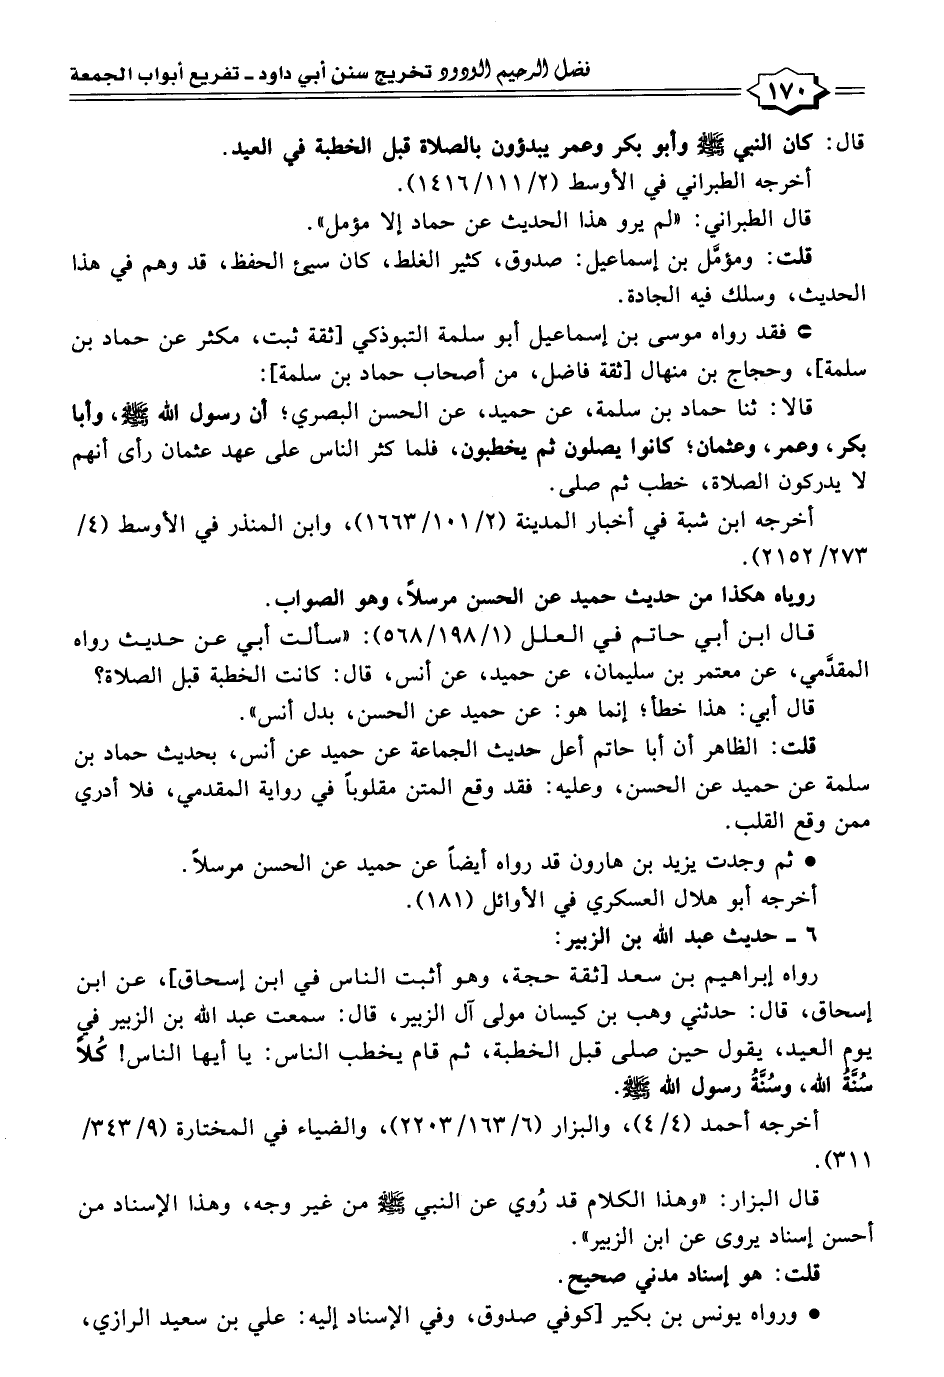 فضل الرحيم الودود تخريج سنن أبي داود ـ تفريع أبواب الجمعة
١٧٠
قال: كان النبي ﷺ وأبو بكر وعمر يبدؤون بالصلاة قبل الخطبة في العيد.
أخرجه الطبراني في الأوسط (٢/١١١/١٤١٦).
قال الطبراني: «لم يرو هذا الحديث عن حماد إلا مؤمل».
قلت: ومؤمَّل بن إسماعيل: صدوق، كثير الغلط، كان سيئ الحفظ، قد وهم في هذا
الحديث، وسلك فيه الجادة.
فقد رواه موسى بن إسماعيل أبو سلمة التبوذكي [ثقة ثبت، مكثر عن حماد بن
سلمة]، وحجاج بن منهال [ثقة فاضل، من أصحاب حماد بن سلمة]:
قالا: ثنا حماد بن سلمة، عن حميد، عن الحسن البصري؛ أن رسول الله ﷺ، وأبا
بكر، وعمر، وعثمان؛ كانوا يصلون ثم يخطبون، فلما كثر الناس على عهد عثمان رأى أنهم
لا يدركون الصلاة، خطب ثم صلى.
أخرجه ابن شبة في أخبار المدينة (٢/١٠١/١٦٦٣)، وابن المنذر في الأوسط (٤/
٢٧٣/٢١٥٢).
روياه هكذا من حديث حميد عن الحسن مرسلاً، وهو الصواب.
قال ابن أبي حاتم في العلل (١/١٩٨/٥٦٨): «سألت أبي عن حديث رواه
المقدَّمي، عن معتمر بن سليمان، عن حميد، عن أنس، قال: كانت الخطبة قبل الصلاة؟
قال أبي: هذا خطأ؛ إنما هو: عن حميد عن الحسن، بدل أنس».
قلت: الظاهر أن أبا حاتم أعل حديث الجماعة عن حميد عن أنس، بحديث حماد بن
سلمة عن حميد عن الحسن، وعليه: فقد وقع المتن مقلوباً في رواية المقدمي، فلا أدري
ممن وقع القلب.
• ثم وجدت يزيد بن هارون قد رواه أيضاً عن حميد عن الحسن مرسلاً.
أخرجه أبو هلال العسكري في الأوائل (١٨١).
٦ ـ حديث عبد الله بن الزبير:
رواه إبراهيم بن سعد [ثقة حجة، وهو أثبت الناس في ابن إسحاق]، عن ابن
إسحاق، قال: حدثني وهب بن كيسان مولى آل الزبير، قال: سمعت عبد الله بن الزبير في
يوم العيد، يقول حين صلى قبل الخطبة، ثم قام يخطب الناس: يا أيها الناس! كُلاًّ
سُنَّةُ الله، وسُنَّةُ رسول الله ﷺ.
أخرجه أحمد (٤/٤)، والبزار (٦/١٦٣/٢٢٠٣)، والضياء في المختارة (٩/٣٤٣/
٣١١).
قال البزار: «وهذا الكلام قد رُوي عن النبي ﷺ من غير وجه، وهذا الإسناد من
أحسن إسناد يروى عن ابن الزبير».
قلت: هو إسناد مدني صحيح.
• ورواه يونس بن بكير [كوفي صدوق، وفي الإسناد إليه: علي بن سعيد الرازي،